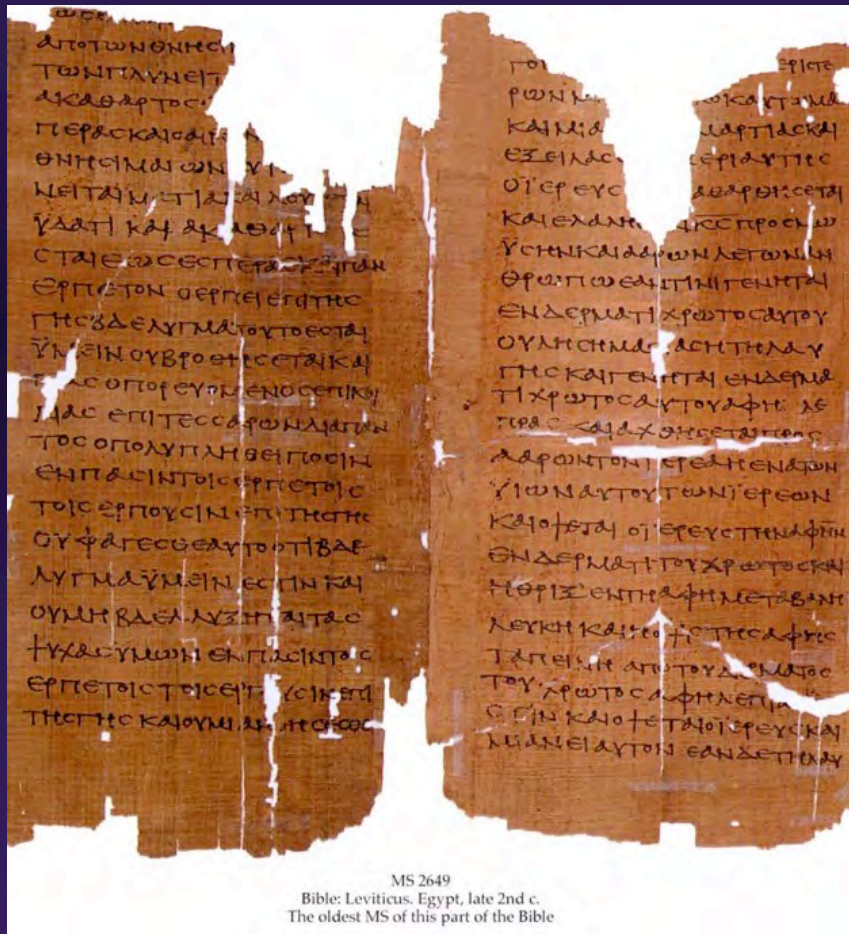 ΑΠΟΤΩΝΘΝΗϹΙ
ΤΩΝΠΛΥΝΕΙΤ
ΑΚΑΘΑΡΤΟϹ
ΠΕΡΑϹΚΑΙ
ΘΝΗϹΙΜΑΙΩΝ
ΝΕΙΤΑΙΜΑΤΙΑΚΑΙΛΟΥ
ΫΔΑΤΙ ΚΑΙ ΑΚΑΘΑΡΤ Ε
ϹΤΑΙΕΩϹΕϹΠΕΡΑϹΚΑΙΠΑΝ
ΕΡΠΕΤΟΝ ΟΕΡΠΕΙΕΠΙΤΗϹ
ΓΗϹΒΔΕΛΥΓΜΑΤΟΥΤΟΕϹΤΑΙ
ΫΜΕΙΝΟΥΒΡΟΘΗϹΕΤΑΙΚΑΙ
ΠΑϹΟΠΟΡΕΥΟΜΕΝΟϹΕΠΙΚΟΙ
ΛΙΑϹ ΕΠΙΤΕϹϹΑΡΩΝΔΙΑΠΑΝ
ΤΟϹΟΠΟΛΥΠΛΗΘΕΙΠΟϹΙΝ
ΕΝΠΑϹΙΝΤΟΙϹΕΡΠΕΤΟΙϹ
ΤΟΙϹΕΡΠΟΥϹΙΝΕΠΙΤΗϹΓΗϹ
ΟΥΦΑΓΕϹΘΕΑΥΤΟΟΤΙΒΔΕ
ΛΥΓΜΑΫΜΕΙΝΕϹΤΙΝΚΑΙ
ΟΥΜΗΒΔΕΛΛΥΞΗΤΑΙΤΑϹ
ΨΥΧΑϹΫΜΩΝΕΝΠΑϹΙΝΤΟΙϹ
ΕΡΠΕΤΟΙϹΤΟΙϹΕΡΠΟΥϹΙΝΕΠΙ
ΤΗϹΓΗϹ ΚΑΙΟΥΜΙΑΝΘΗϹΕϹΘΕ
ΓΟΙ ΕΡΙϹΤΕ
ΡΩΝΜ ΩΚΑΥΤΩΜΑ
ΚΑΙΜΙΑ ΜΑΡΤΙΑϹΚΑΙ
ΕΞΕΙΛΑϹ ΕΡΙΑΥΤΗϹ
ΟΪΕΡΕΥϹ ΑΘΑΡΘΗϹΕΤΑΙ
ΚΑΙΕΛΑΛΗ ΚϹΠΡΟϹΜΩ
ΫϹΗΝΚΑΙΑΑΡΩΝΛΕΓΩΝΑΝ
ΘΡΩΠΩΕΑΝΤΙΝΙΓΕΝΗΤΑΙ
ΕΝΔΕΡΜΑΤΙΧΡΩΤΟϹΑΥΤΟΥ
ΟΥΛΗϹΗΜΑϹΙΑϹΗΤΗΛΑΥ
ΓΗϹΚΑΙΓΕΝΗΤΑΙΕΝΔΕΡΜΑ
ΤΙΧΡΩΤΟϹΑΥΤΟΥΑΦΗ ΛΕ
ΠΡΑϹ ΚΑΙΑΧΘΗϹΕΤΑΙΠΡΟϹ
ΑΑΡΩΝΤΟΝΪΕΡΕΑΗΕΝΑΤΩΝ
ΫΙΩΝΑΥΤΟΥΤΩΝΪΕΡΕΩΝ
ΚΑΙΟΨΕΤΑΙΟΪΕΡΕΥϹΤΗΝΑΦΗΝ
ΕΝΔΕΡΜΑΤΙΤΟΥΧΡΩΤΟϹΚΑΙ
ΗΘΡΙΞΕΝΤΗΑΦΗΜΕΤΑΒΑΛΗ
ΛΕΥΚΗΚΑΙΗΟΨΙϹΤΗϹΑΦΗϹ
ΤΑΠΕΙΝΗ ΑΠΟΤΟΥΔΕΡΜΑΤΟϹ
ΤΟΥ ΧΡΩΤΟϹΑΦΗΛΕΠΡΑ
ϹΤΙΝ ΚΑΙΟΨΕΤΑΙΟΪΕΡΕΥϹΚΑΙ
ΜΙΑΝΕΙΑΥΤΟΝ ΕΑΝΔΕΤΗΛΑΥ
MS 2649
Bible: Leviticus. Egypt, late 2nd c.
The oldest MS of this part of the Bible